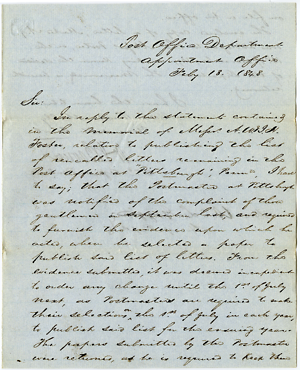 Post Office Department
Appointment Office
Feby 18. 1848.
Sir,
In reply to the statement contained
in the Memorial of Messrs
Foster, relating to publishing the list
of uncalled letters remaining in the
Post Office at Pittsburgh, Penna, I have
to say, that the Postmaster at Pittsbgh
was notified of the complaint of those
gentlemen in September last, and required
to furnish the evidence upon which he
acted, when he selected a paper to
publish said list of letters. From the
evidence submitted, it was deemed inexpedient
to order any change until the 1st of July
next, as Postmasters are required to make
their selections, the 1st of July in each year,
to publish said list for the ensuing year.
The papers submitted by the Postmaster
were returned, as he is required to keep them